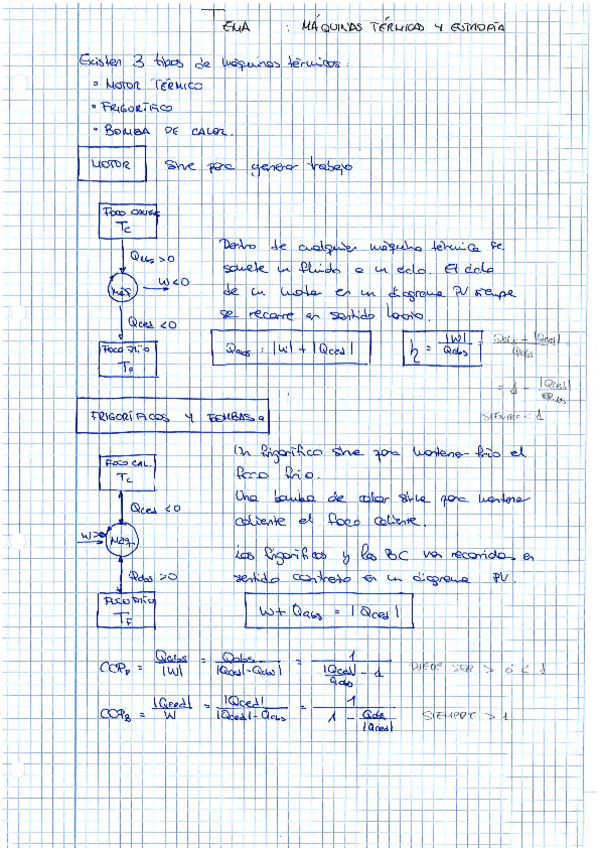 TEMA : MÁQUINAS TÉRMICAS Y ENTROPÍA
Existen 3 tipos de máquinas térmicas.
• MOTOR TÉRMICO
• FRIGORÍFICO
• BOMBA DE CALOR.
MOTOR Sirve para generar trabajo
FOCO CALIENTE
Tc
Qabs >0
W<0
MÁQ
Qced <0
FOCO FRÍO
TF
Dentro de cualquier máquina térmica se
somete un fluido a un ciclo. El ciclo
de un motor en un diagrama PV siempre
se recorre en sentido horario.
Qabs = |W| + |Qced|
η = |W| / Qabs = Qabs - |Qced| / Qabs
= 1 - |Qced| / Qabs
SIEMPRE < 1
FRIGORÍFICOS Y BOMBAS
FOCO CAL.
Tc
Qced <0
W>0
MÁQ.
Qabs >0
FOCO FRÍO
TF
Un frigorífico sirve para mantener frío el
foco frío.
Una bomba de calor sirve para mantener
caliente el foco caliente.
Los frigoríficos y las BC van recorridos en
sentido contrario en un diagrama PV.
W + Qabs = |Qced|
COPF = Qabs / |W| = Qabs / |Qced| - |Qabs| = 1 / |Qced| / Qabs - 1 PUEDE SER > ó < 1
COPB = |Qced| / W = |Qced| / |Qced| - Qabs = 1 / 1 - Qabs / |Qced| SIEMPRE > 1